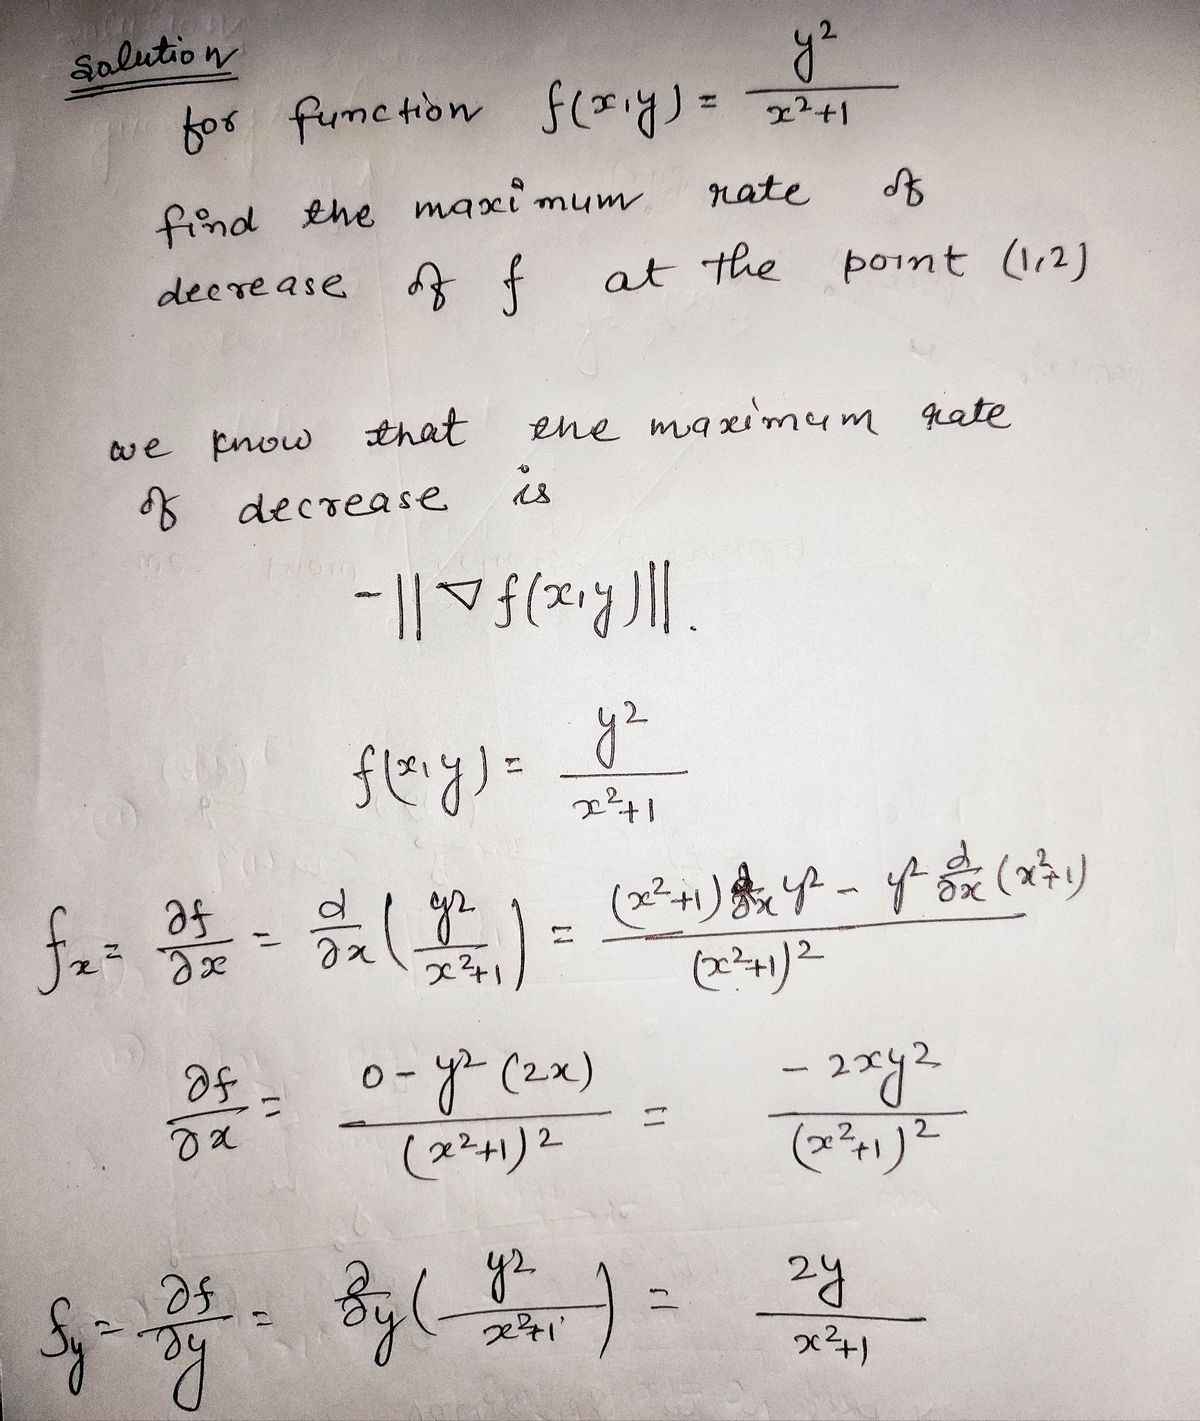 Solution
for function f(x,y) = y²/(x²+1)
find the maximum rate of
decrease of f at the point (1,2)
we know that the maximum rate
of decrease is
-||∇f(x,y)||.
f(x,y) = y²/(x²+1)
fx = ∂f/∂x = ∂/∂x (y²/(x²+1)) = ((x²+1) ∂/∂x y² - y² ∂/∂x (x²+1))/(x²+1)²
∂f/∂x = (0 - y² (2x))/(x²+1)² = -2xy²/(x²+1)²
fy = ∂f/∂y = ∂/∂y (y²/(x²+1)) = 2y/(x²+1)